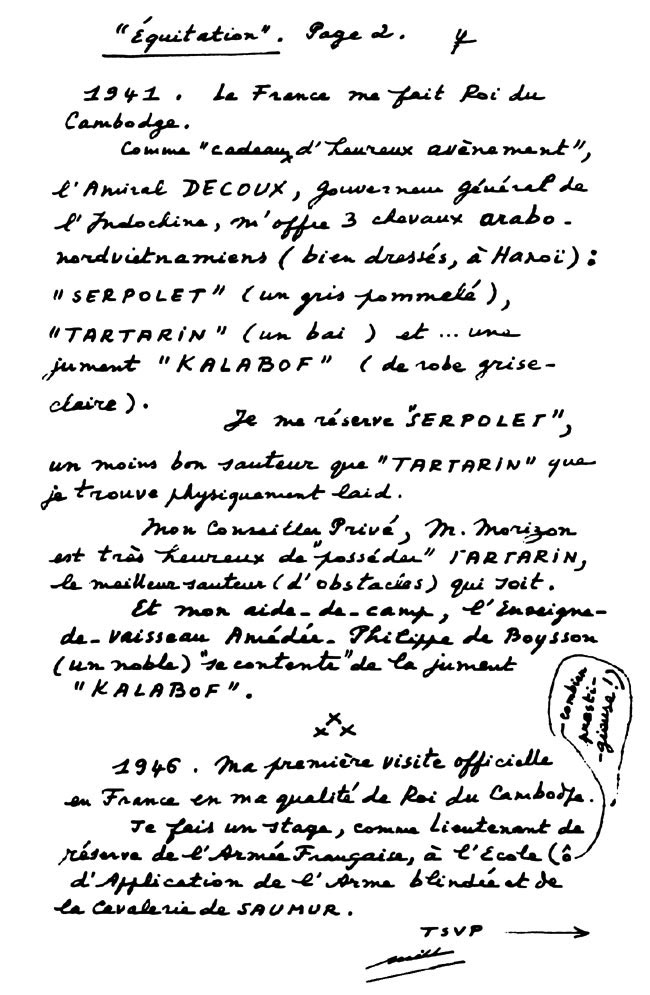 "Équitation". Page 2.
1941. La France me fait Roi du
Cambodge.
Comme "cadeaux d'heureux avènement",
l'Amiral DECOUX, Gouverneur Général de
l'Indochine, m'offre 3 chevaux arabo-
nordvietnamiens (bien dressés, à Hanoï):
"SERPOLET" (un gris pommelé),
"TARTARIN" (un bai) et ... une
jument "KALABOF" (de robe grise-
claire).
Je me réserve "SERPOLET",
un moins bon sauteur que "TARTARIN" que
je trouve physiquement laid.
Mon Conseiller Privé, M. Morizon
est très heureux de "posséder" TARTARIN,
le meilleur sauteur (d'obstacles) qui soit.
Et mon aide-de-camp, l'Enseigne-
de-vaisseau Amédée-Philippe de Boysson
(un noble) "se contente" de la jument
"KALABOF".
xxx
1946. Ma première visite officielle
en France en ma qualité de Roi du Cambodge.
Je fais un stage, comme Lieutenant de
réserve de l'Armée Française, à l'Ecole (ô
combien
presti-
gieuse!)
d'Application de l'Arme blindée et de
la Cavalerie de SAUMUR.
TSVP